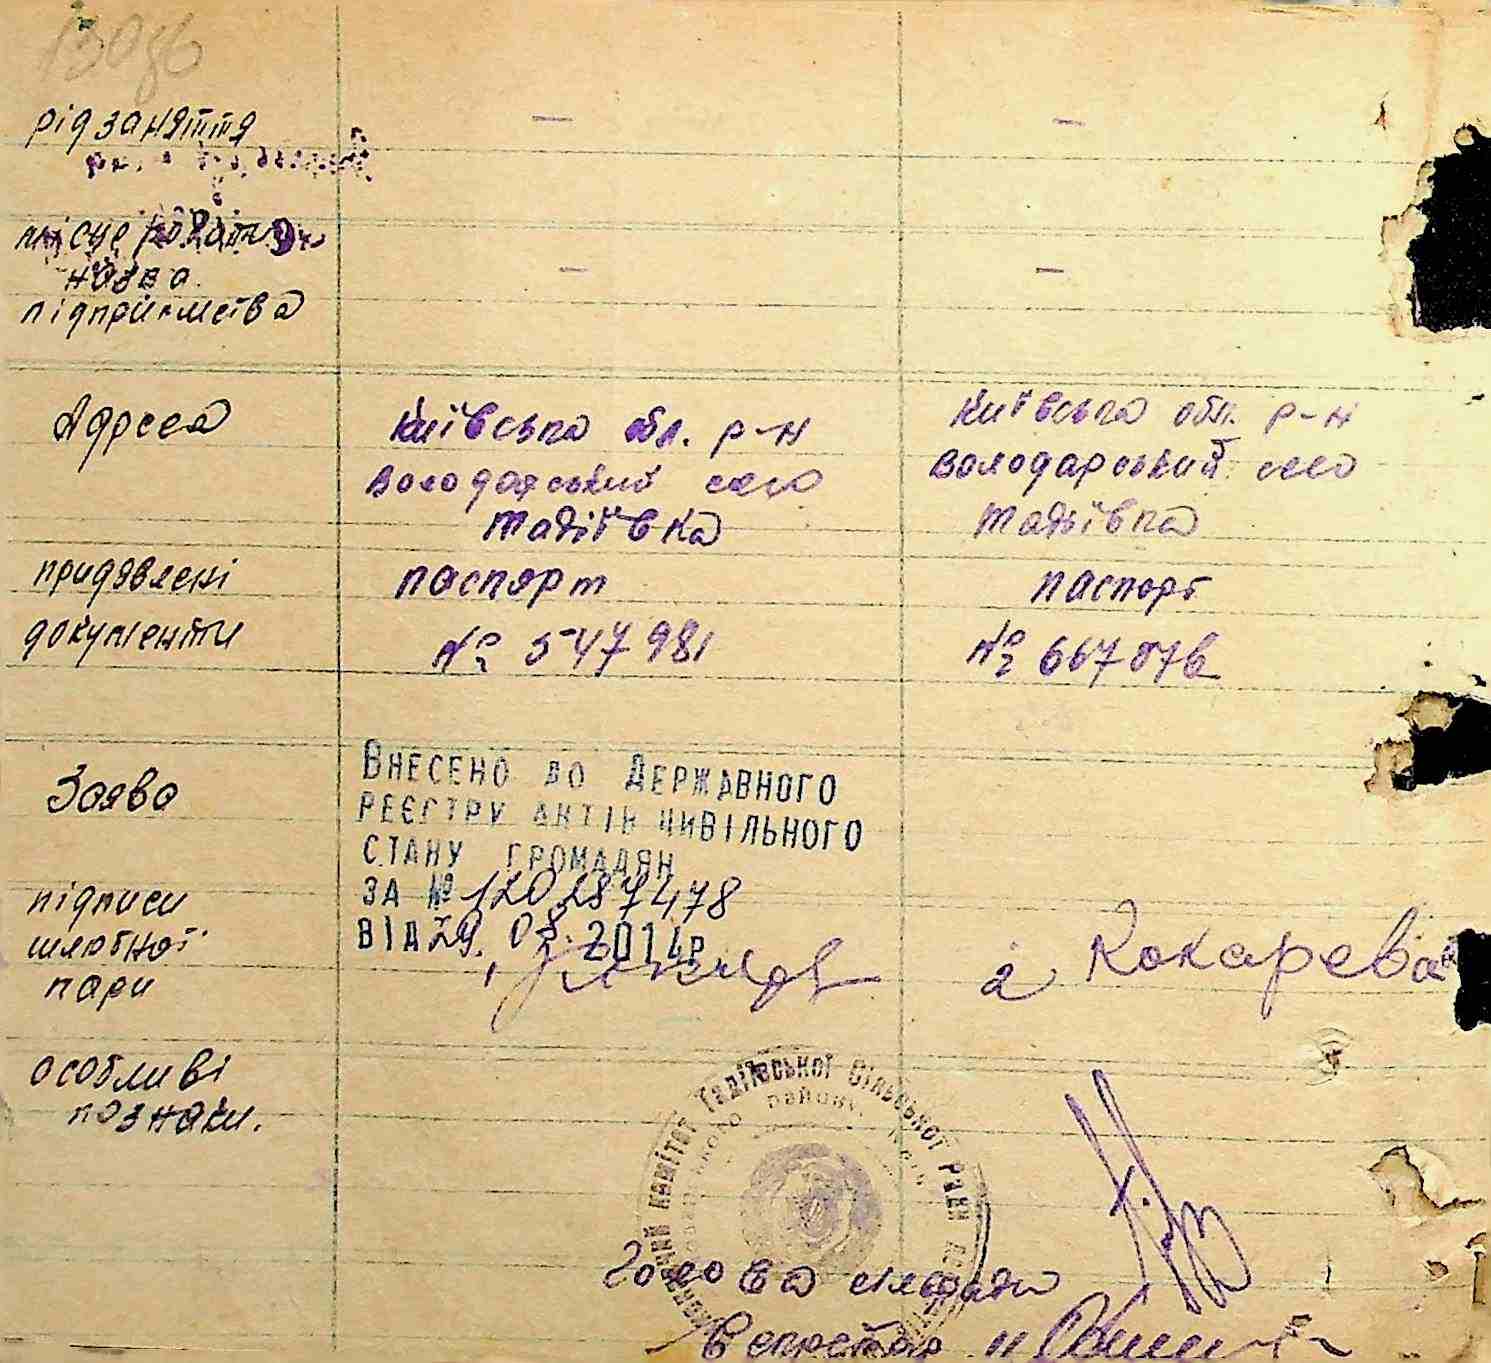 рід заняття — —
місце роботи
назва — —
підприємства
Адреса Київська обл. р-н Київська обл. р-н
Володарський село Володарський село
Тадіївка Тадіївка
придявлені паспорт паспорт
документи № 547981 № 667076
Заява
ВНЕСЕНО ДО ДЕРЖАВНОГО
РЕЄСТРУ АКТІВ ЦИВІЛЬНОГО
СТАНУ ГРОМАДЯН
ЗА № 120287478
ВІД 29. 08. 2014р
підписи
шлюбної
пари Кокарева
особливі
познаки.
Виконавчий комітет Тадіївської Сільської Ради
району
Голова сільради
Секретар